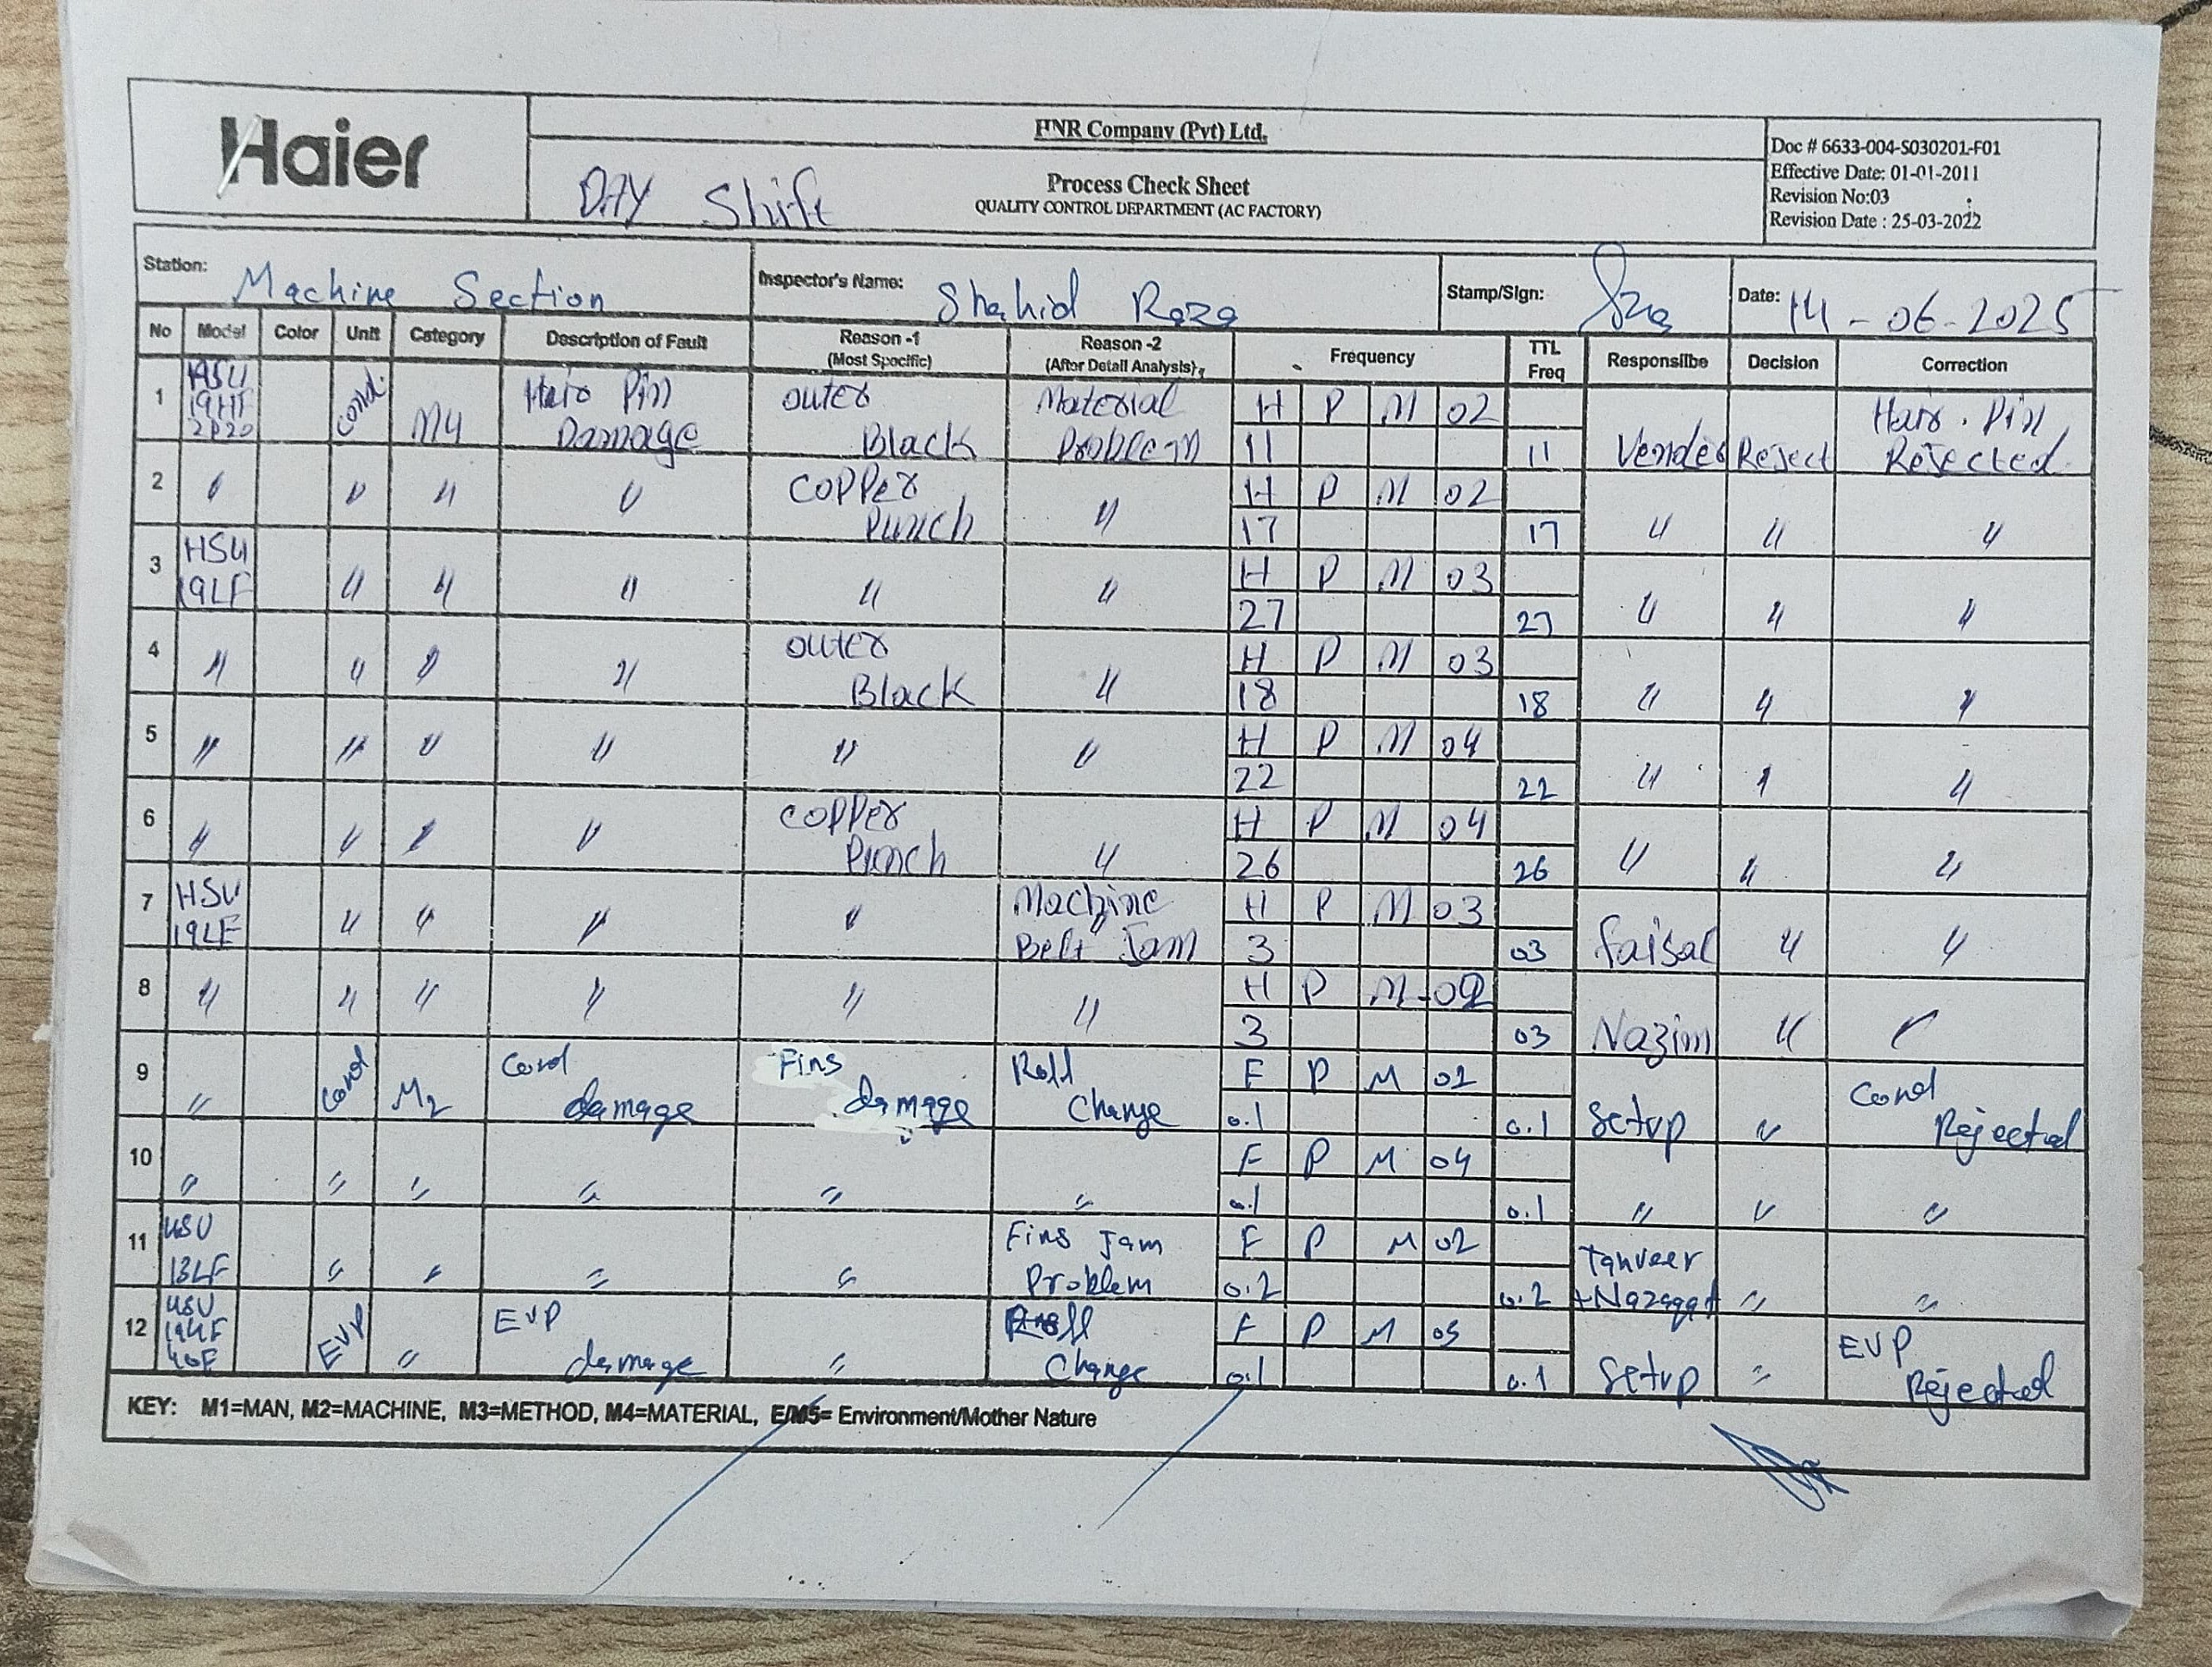 Haier
HNR Company (Pvt) Ltd.
DAY Shift
Process Check Sheet
QUALITY CONTROL DEPARTMENT (AC FACTORY)
Doc # 6633-004-S030201-F01
Effective Date: 01-01-2011
Revision No:03
Revision Date : 25-03-2022
Station: Machine Section
Inspector's Name: Shahid Raza
Stamp/Sign:
Date: 14-06-2025
No Model Color Unit Category Description of Fault Reason -1 (Most Spocific) Reason -2 (After Detall Analysis) Frequency TTL Freq Responsilbe Decision Correction
1 HSU 19HF Cond. M4 Hair Pin Damage outer Black Material Problem H P M 02 11 11 Vender Reject Hair. Pin Rejected
2 〃 〃 〃 〃 Copper Punch 〃 H P M 02 17 17 〃 〃 〃
3 HSU 19LF 〃 〃 〃 〃 〃 H P M 03 27 27 〃 〃 〃
4 〃 〃 〃 〃 outer Black 〃 H P M 03 18 18 〃 〃 〃
5 〃 〃 〃 〃 〃 〃 H P M 04 22 22 〃 〃 〃
6 〃 〃 〃 〃 Copper Punch 〃 H P M 04 26 26 〃 〃 〃
7 HSU 19LF 〃 〃 〃 〃 Machine Belt Jam H P M 03 3 03 Faisal 〃 〃
8 〃 〃 〃 〃 〃 〃 H P M 02 3 03 Nazim 〃 〃
9 〃 Cond M2 Cond damage Fins damage Roll Change F P M 02 0.1 0.1 Setup 〃 Cond Rejected
10 〃 〃 〃 〃 〃 〃 F P M 04 0.1 0.1 〃 〃 〃
11 HSU 13LF 〃 〃 〃 〃 Fins Jam Problem F P M 02 0.2 0.2 Tanveer 〃 〃
12 HSU EVP 〃 EVP damage 〃 Roll Change F P M 05 0.1 0.1 Setup 〃 EVP Rejected
KEY: M1=MAN, M2=MACHINE, M3=METHOD, M4=MATERIAL, E/M5= Environment/Mother Nature